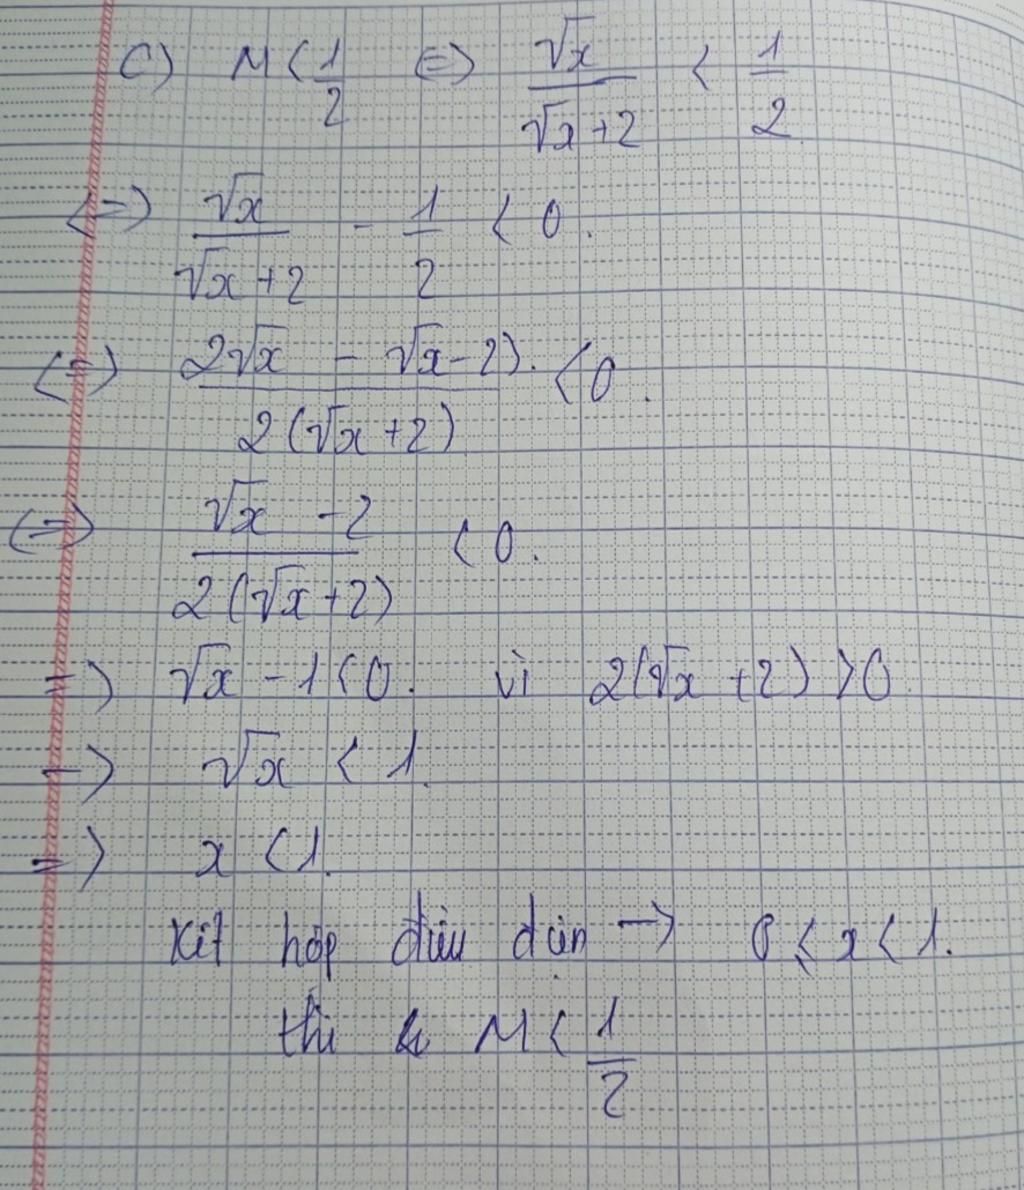 c) M < 1/2 <=> √x / (√x + 2) < 1/2
<=> √x / (√x + 2) - 1/2 < 0.
<=> (2√x - √x - 2) / 2(√x + 2) < 0.
<=> (√x - 2) / 2(√x + 2) < 0.
=> √x - 1 < 0. vì 2(√x + 2) > 0
=> √x < 1.
=> x < 1.
Kết hợp điều kiện -> 0 ≤ x < 1.
thì M < 1/2